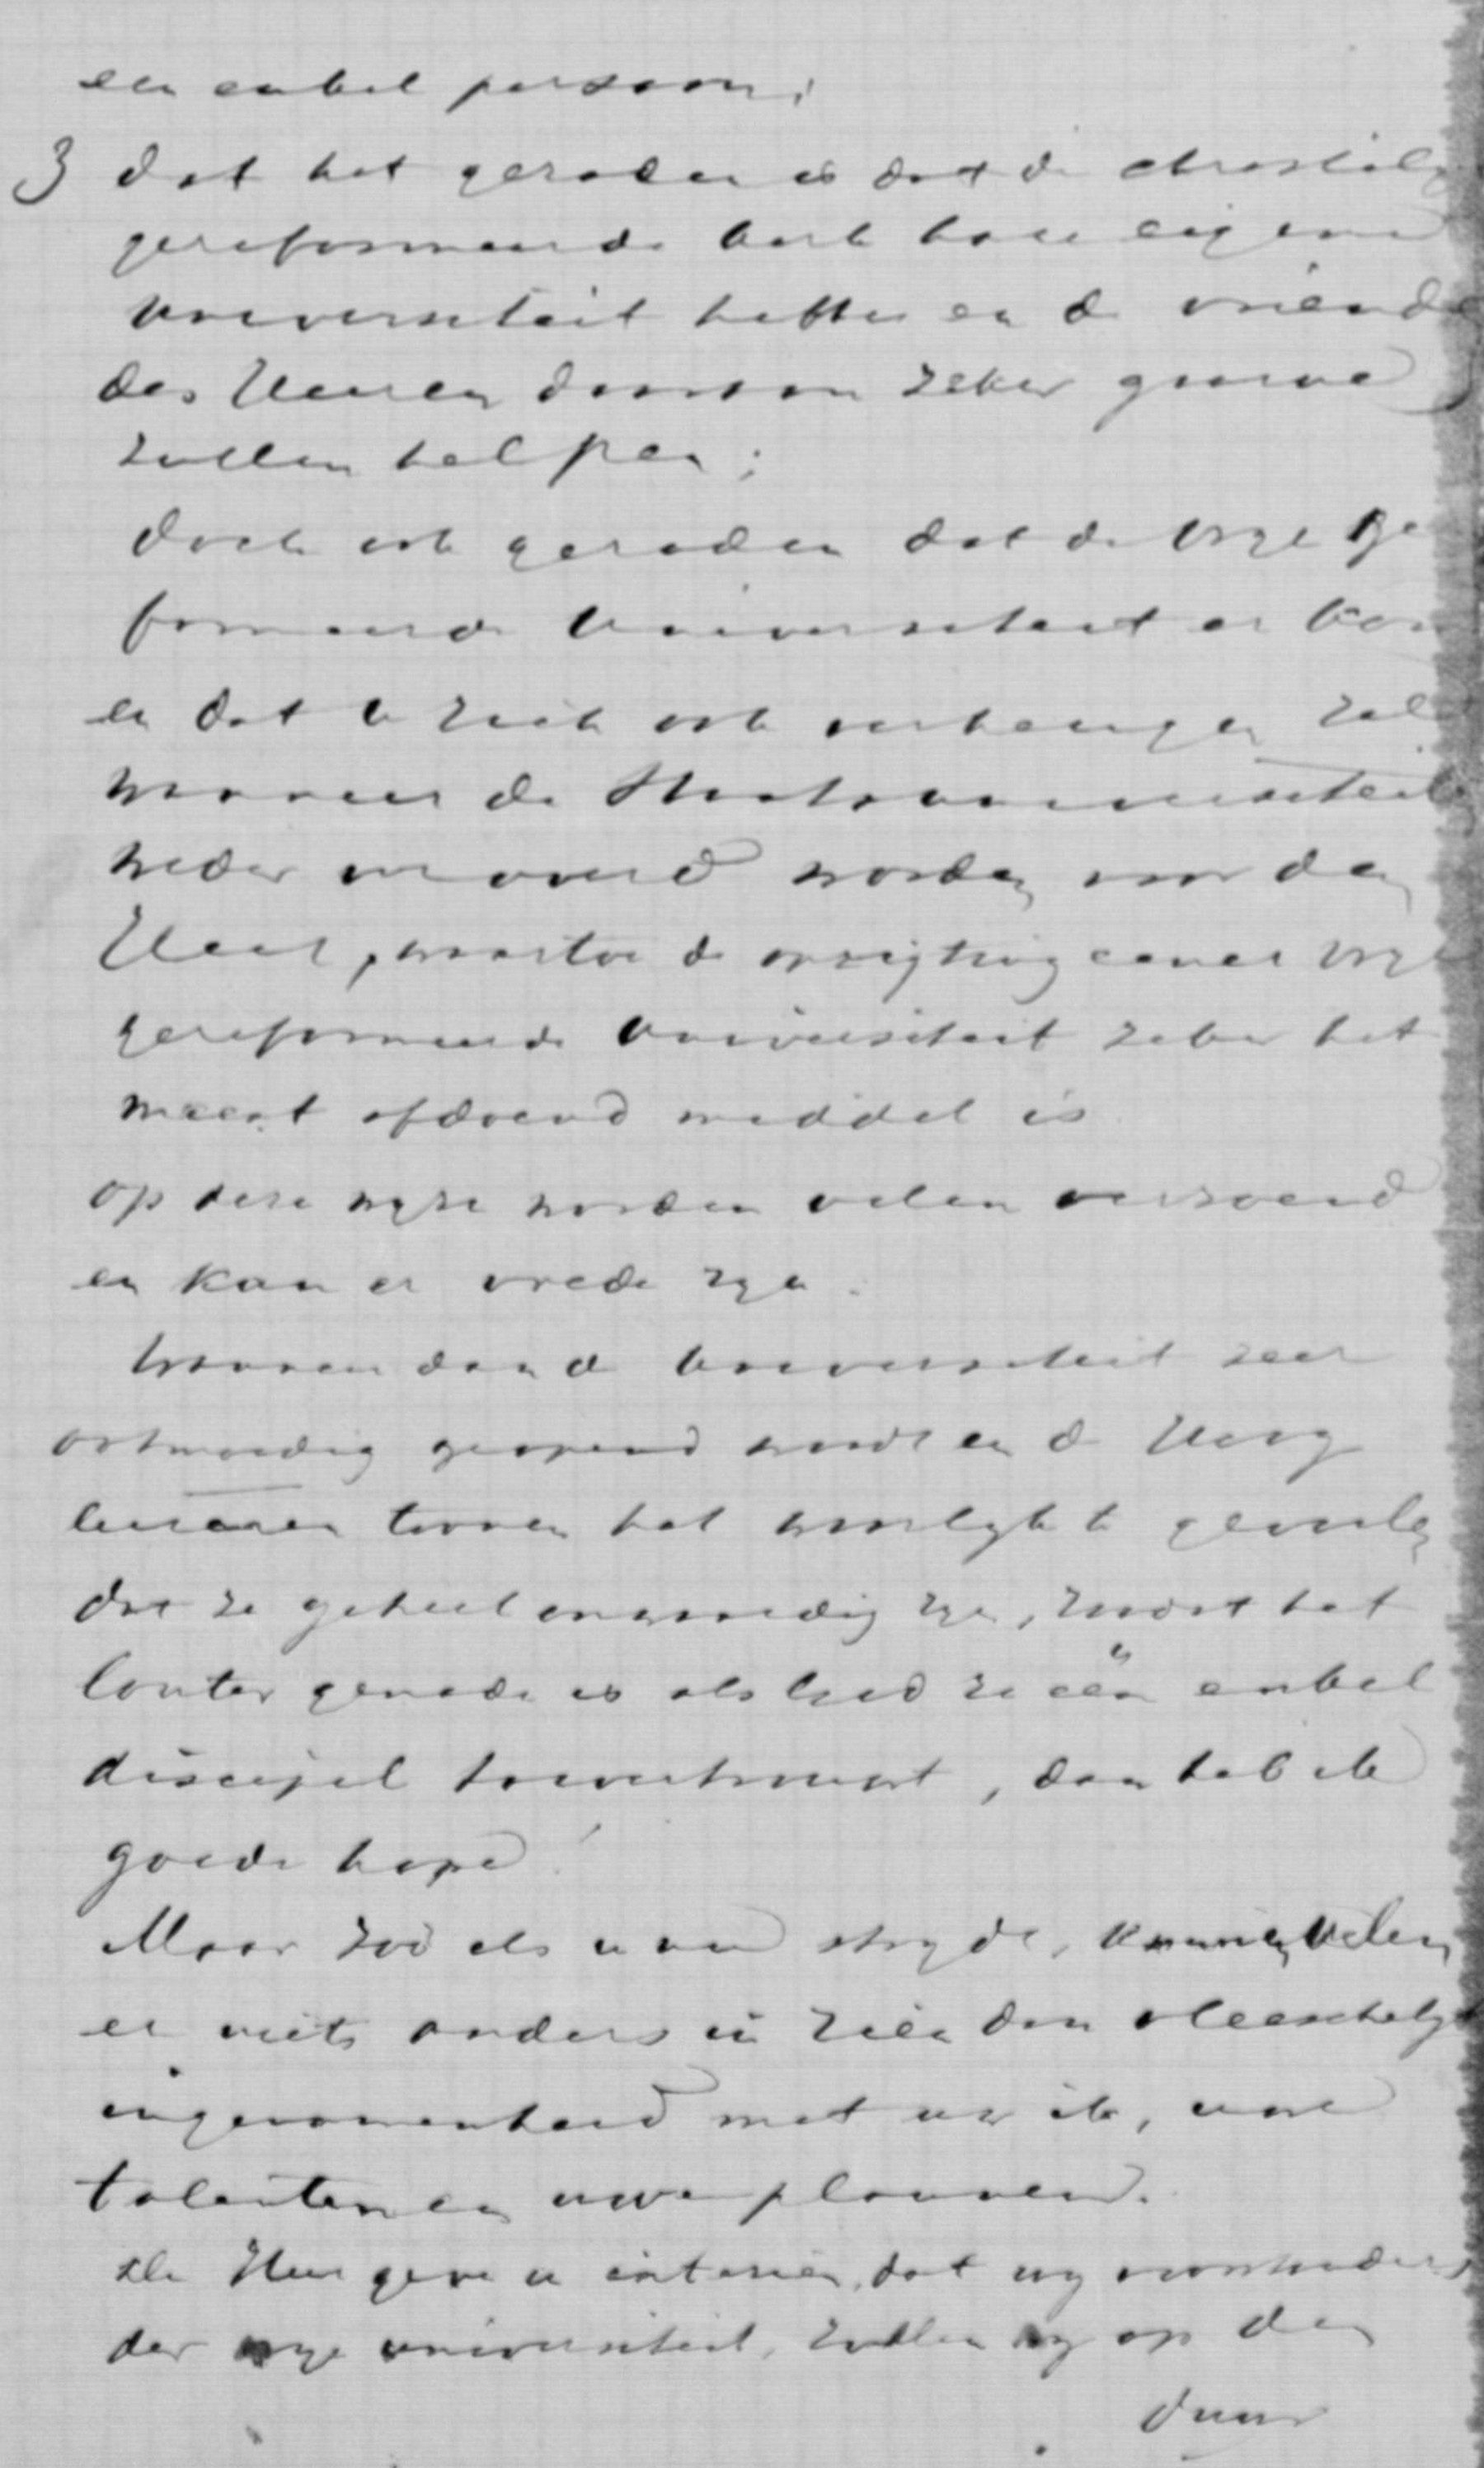 een enkel persoon;
3 dat het geraden is dat de christelij
gereformeerde kerk hare eigene
universiteit hebbe en de vriende
des Heeren daaraan zeker gaarne
zullen helpen;
doch ook geraden dat de vrije ge
formeerde Universiteit er kom
en dat u zich ook verheugen zal
wanneer de Staatsuniversiteit
weder veroverd worden voor den
Heer, waartoe de oprigting eener vrije
gereformeerde Universiteit zeker het
meest afdoend middel is
op deze wyze worden velen verzoend
en kan er vrede zyn.
Wanneer dan de Universiteit zeer
ootmoedig geopend wordt en de Hoog
leeraren toonen het werkelyk te gevoelen
dat ze geheel onwaardig zyn, zoodat het
louter genade is als God ze één enkel
discipel toevertrouwt, dan heb ik
goede hope!
Maar zoo als u nu strydt, kunnen velen
er niets anders in zien dan vleeschelyk
ingenomenheid met uw ik, uwe
talenten en uwe plannen.
De Heer geve u intezien, dat wy voorstanders
der vrye universiteit, zullen wy op den
duur